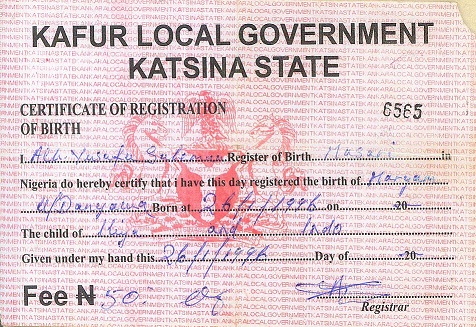 KAFUR LOCAL GOVERNMENT
KATSINA STATE
CERTIFICATE OF REGISTRATION
OF BIRTH
6565
I Alh. Yusufu Register of Birth Masari in
Nigeria do hereby certify that i have this day registered the birth of Maryam
Born at 26/1/1996 on -20-
The child of Iliya and Indo
Given under my hand this 26/1/1996 Day of -20-
Fee ₦ 50:
Registrar